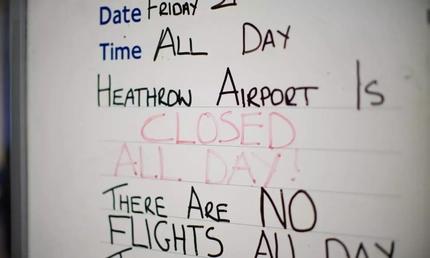 Date FRIDAY
Time ALL DAY
HEATHROW AIRPORT IS
CLOSED
ALL DAY!
THERE ARE NO
FLIGHTS ALL DAY